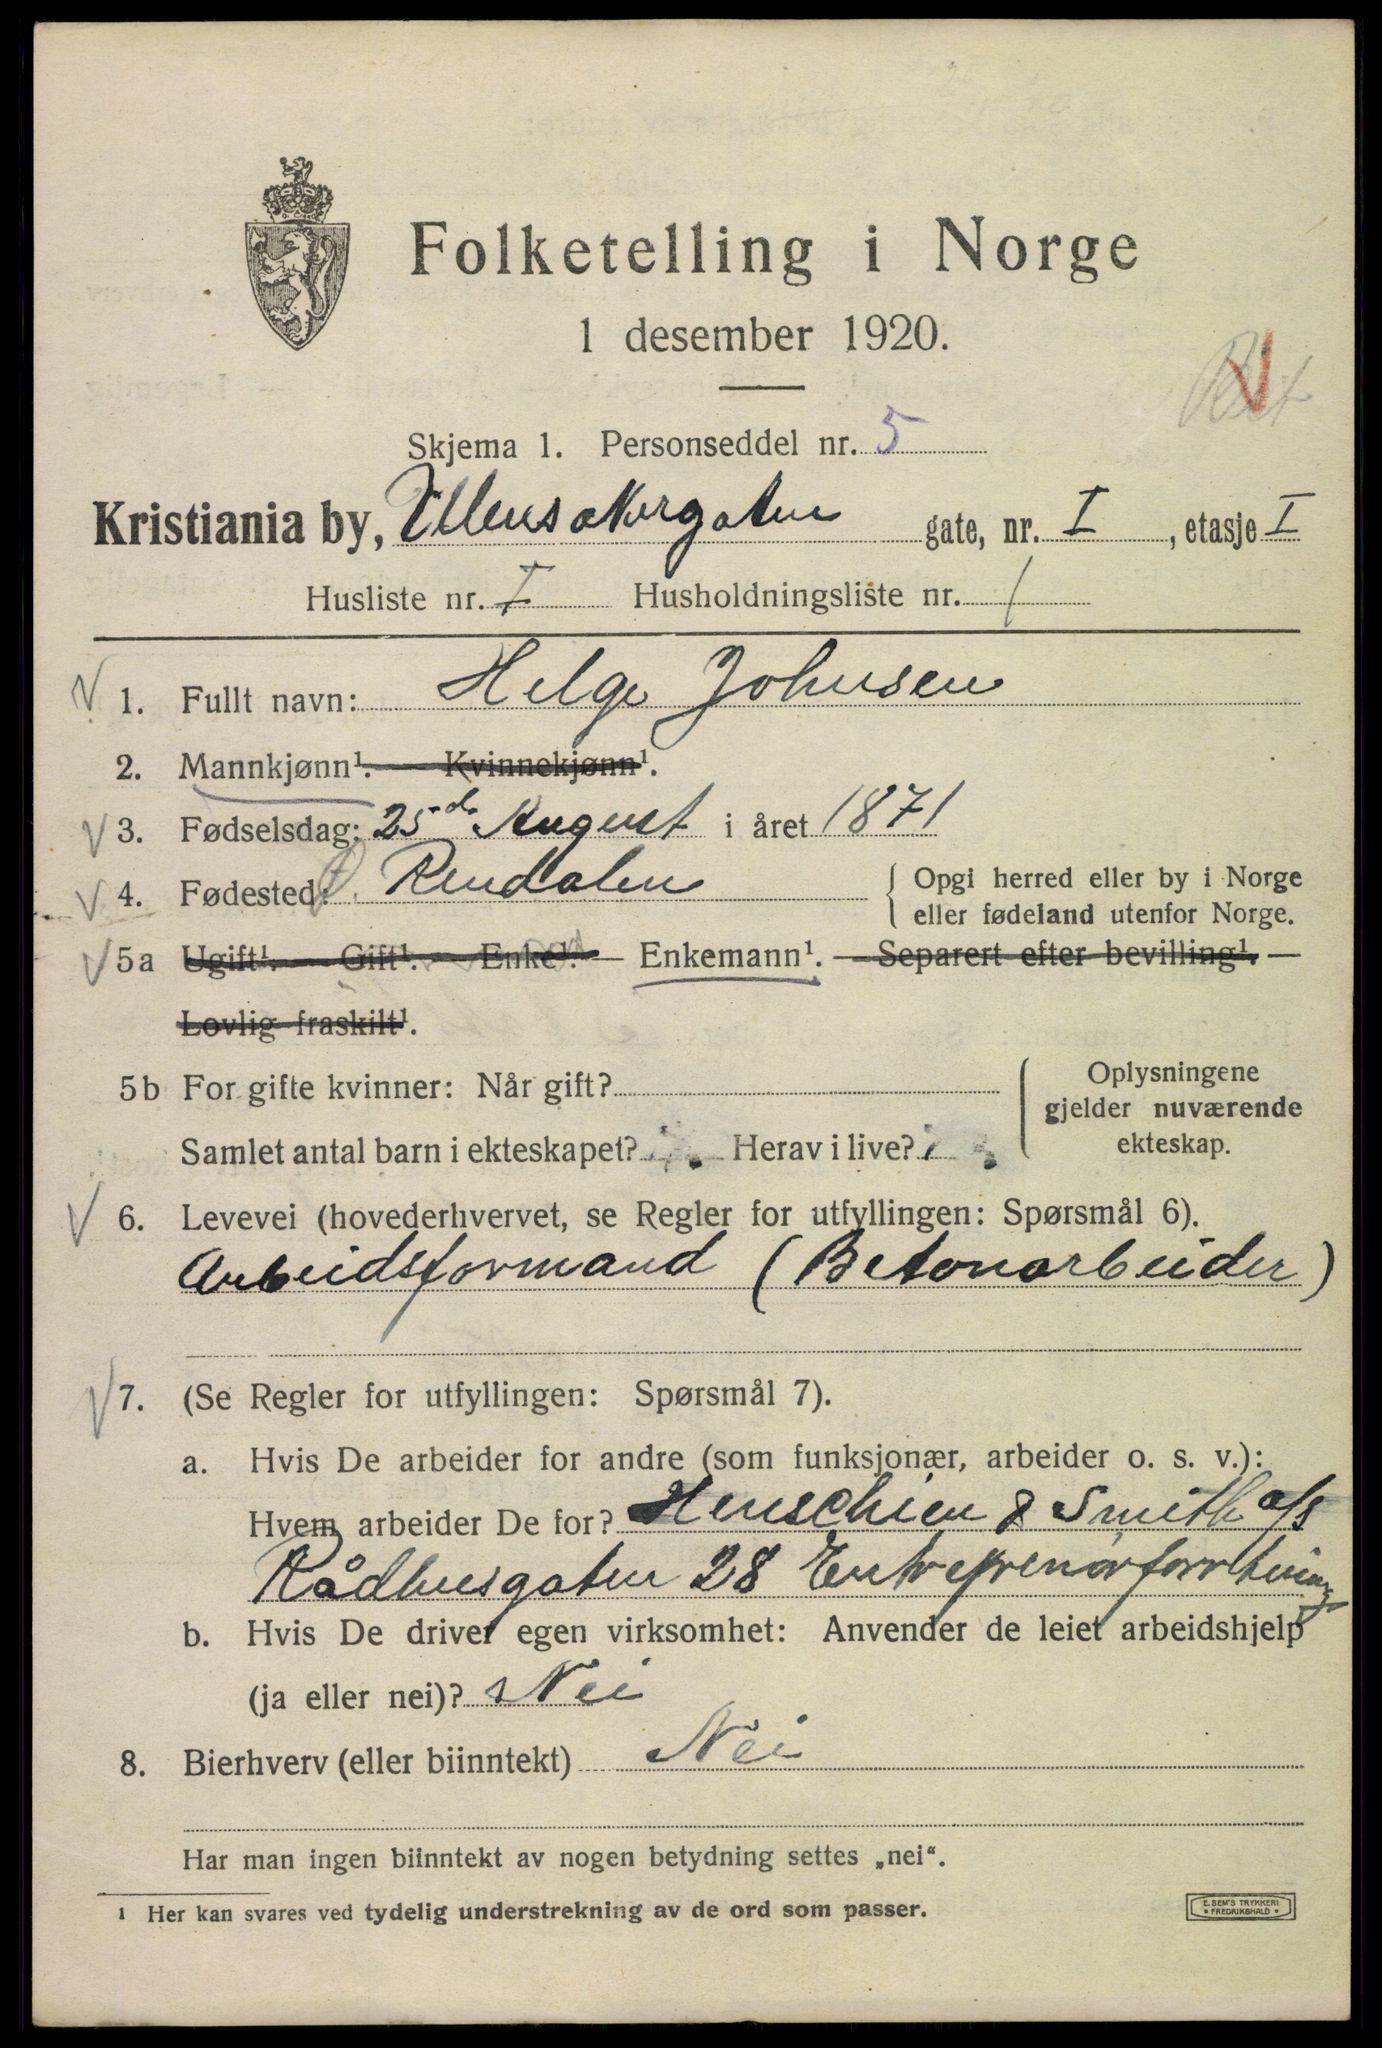 Folketelling i Norge
1 desember 1920.
Skjema 1. Personseddel nr. 5
Kristiania by, Ullensakergaten gate, nr. I, etasje I
Husliste nr. I Husholdningsliste nr. 1
1. Fullt navn: Helge Johnsen
2. Mannkjønn¹. — Kvinnekjønn¹.
3. Fødselsdag: 25de August i året 1871
4. Fødested: Rendalen
Opgi herred eller by i Norge
eller fødeland utenfor Norge.
5a Ugift¹. — Gift¹. — Enke¹. — Enkemann¹. — Separert efter bevilling¹. —
Lovlig fraskilt¹.
5b For gifte kvinner: Når gift?
Samlet antal barn i ekteskapet? Herav i live?
Oplysningene
gjelder nuværende
ekteskap.
6. Levevei (hovederhvervet, se Regler for utfyllingen: Spørsmål 6).
Arbeidsformand (Betonarbeider)
7. (Se Regler for utfyllingen: Spørsmål 7).
a. Hvis De arbeider for andre (som funksjonær, arbeider o. s. v.):
Hvem arbeider De for? Henschien & Smith a/s
Rådhusgaten 28 Entreprenørforretning
b. Hvis De driver egen virksomhet: Anvender de leiet arbeidshjelp
(ja eller nei)? Nei
8. Bierhverv (eller biinntekt) Nei
Har man ingen biinntekt av nogen betydning settes „nei“.
¹ Her kan svares ved tydelig understrekning av de ord som passer.
E. SEM'S TRYKKERI
FREDRIKSHALD